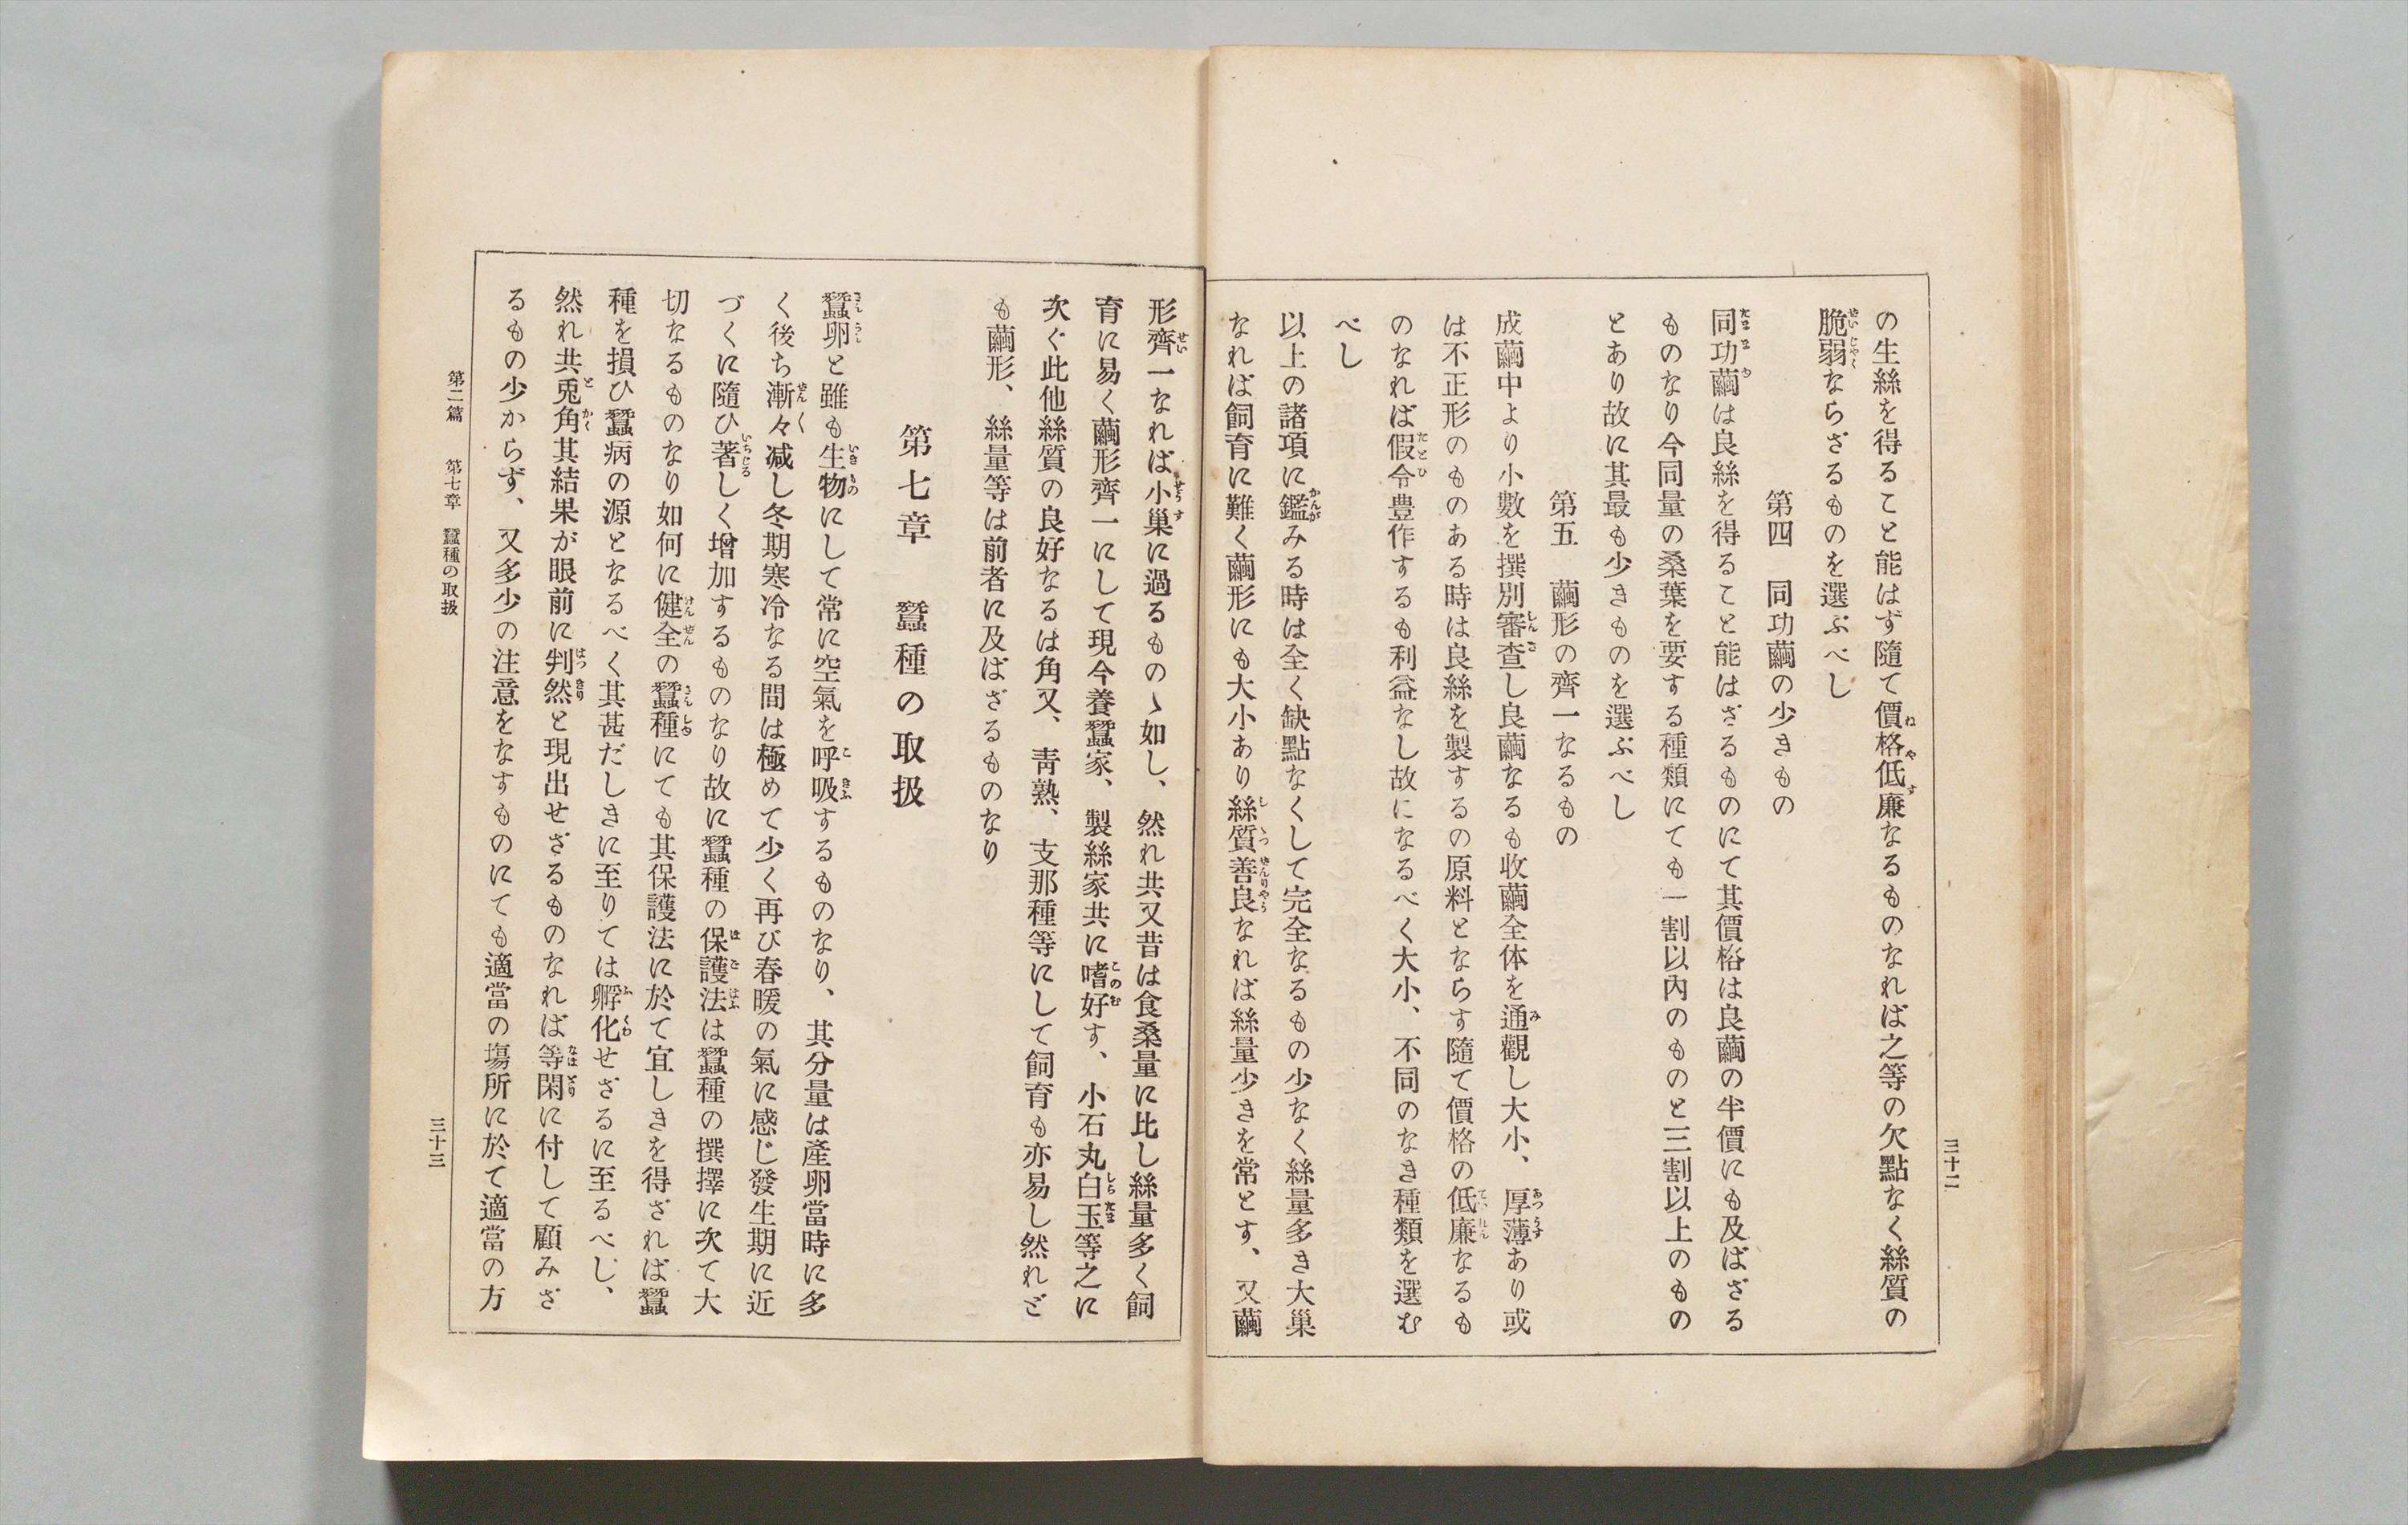 三十二
の生絲を得ること能はず隨て價格低廉なるものなれば之等の欠點なく絲質の
脆弱ならざるものを選ぶべし
第四　同功繭の少きもの
同功繭は良絲を得ること能はざるものにて其價格は良繭の半價にも及ばざる
ものなり今同量の桑葉を要する種類にても一割以內のものと三割以上のもの
とあり故に其最も少きものを選ぶべし
第五　繭形の齊一なるもの
成繭中より小數を撰別審査し良繭なるも收繭全体を通觀し大小、厚薄あり或
は不正形のものある時は良絲を製するの原料とならす隨て價格の低廉なるも
のなれば假令豊作するも利益なし故になるべく大小、不同のなき種類を選む
べし
以上の諸項に鑑みる時は全く缺點なくして完全なるもの少なく絲量多き大巢
なれば飼育に難く繭形にも大小あり絲質善良なれば絲量少きを常とす、又繭
形齊一なれば小巢に過るものゝ如し、然れ共又昔は食桑量に比し絲量多く飼
育に易く繭形齊一にして現今養蠶家、製絲家共に嗜好す、小石丸白玉等之に
次ぐ此他絲質の良好なるは角又、靑熟、支那種等にして飼育も亦易し然れど
も繭形、絲量等は前者に及ばざるものなり
第七章　蠶種の取扱
蠶卵と雖も生物にして常に空氣を呼吸するものなり、其分量は產卵當時に多
く後ち漸々減し冬期寒冷なる間は極めて少く再び春暖の氣に感じ發生期に近
づくに隨ひ著しく增加するものなり故に蠶種の保護法は蠶種の撰擇に次て大
切なるものなり如何に健全の蠶種にても其保護法に於て宜しきを得ざれば蠶
種を損ひ蠶病の源となるべく其甚だしきに至りては孵化せざるに至るべし、
然れ共兎角其結果が眼前に判然と現出せざるものなれば等閑に付して顧みざ
るもの少からず、又多少の注意をなすものにても適當の塲所に於て適當の方
第二篇　第七章　蠶種の取扱
三十三